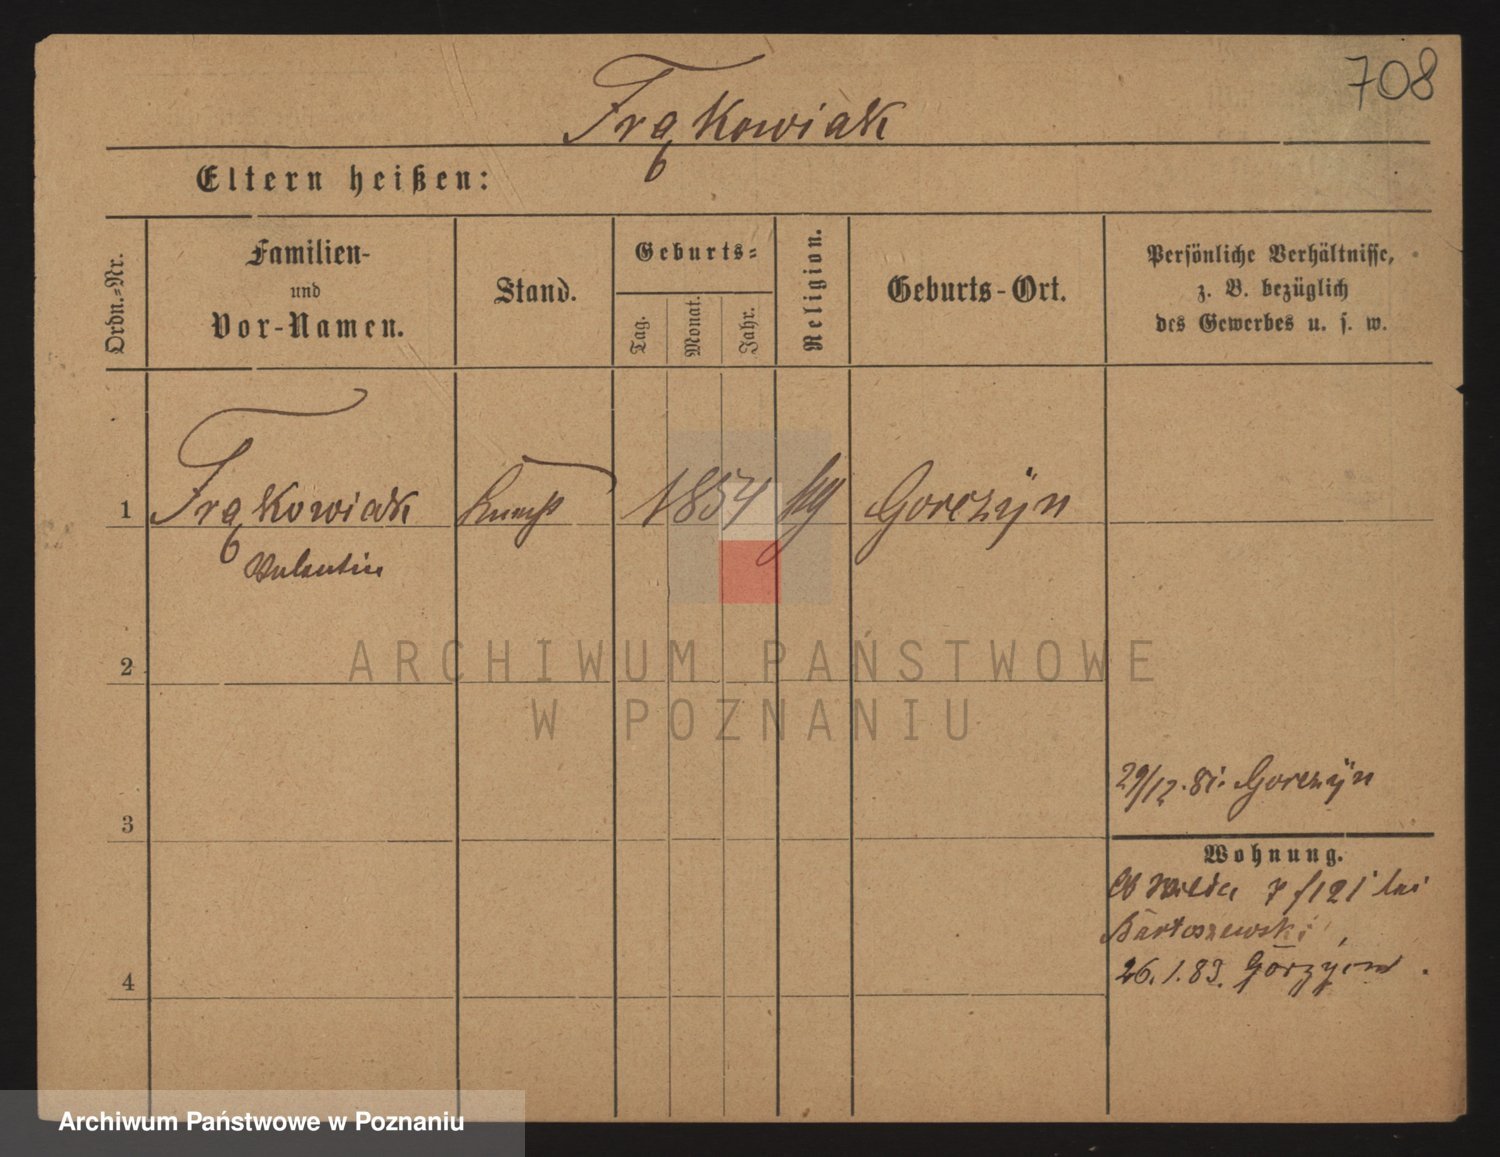 708
Frąkowiak
Eltern heißen:
Ordn.-Nr.
Familien-
und
Vor-Namen.
Stand.
Geburts-
Tag.
Monat.
Jahr.
Religion.
Geburts-Ort.
Persönliche Verhältnisse,
z. B. bezüglich
des Gewerbes u. s. w.
1 Frąkowiak 1854 Gorczÿn
Valentin
ARCHIWUM PAŃSTWOWE
W POZNANIU
2
29/12.81. Gorczÿn
3
Wohnung.
Wilda 7 /121 bei
Bartoszewski
26.1.83.
4
Archiwum Państwowe w Poznaniu